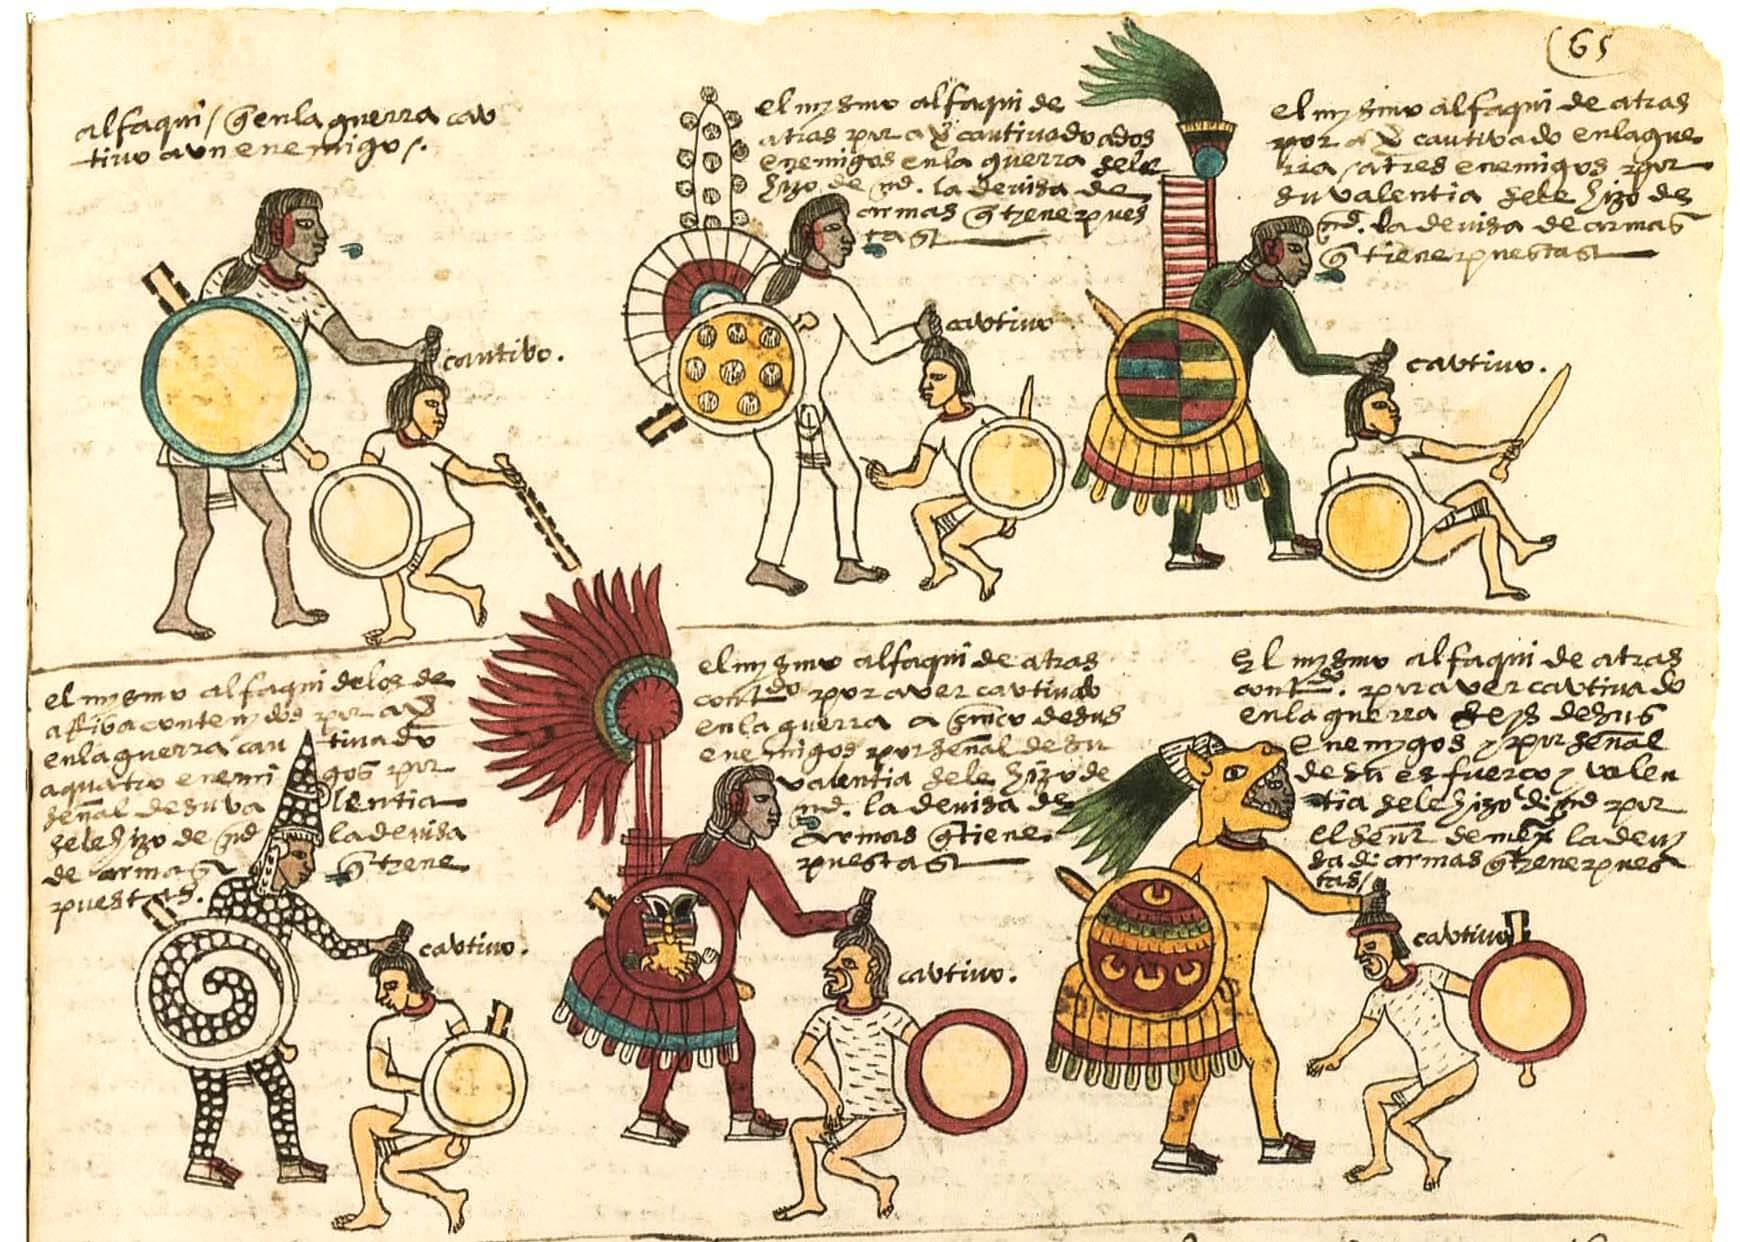 65
alfaqui / q̃ en la guerra cau
tivo a un enemigo /.
cautibo.
el mysmo alfaqui de
atras por aũ cautivado a dos
enemigos en la guerra sele
hizo de md. la devisa de
armas q̃ tyene pues
tas
cautivo
el mysmo alfaqui de atras
por aũ cautivado en la gue
rra / a tres enemigos por
su valentia sele hizo de
md. la devisa de armas
q̃ tiene puestas
cautivo.
el mysmo alfaqui de los de
arriba contenydos por aũ
en la guerra cau tivado
a quatro enemi gos por
señal de su va lentia
sele hizo de md la devisa
de armas q̃ tyene
puestas.
cautivo.
el mysmo alfaqui de atras
cont.do por aver cautivado
en la guerra a cinco de sus
enemigos por señal de su
valentia sele hizo de
md. la devisa de
armas q̃ tiene
puestas
cautivo.
El mysmo alfaqui de atras
cont.do. por aver cautivado
en la guerra seys de sus
enemygos y por señal
de su esfuerço y valen
tia sele hizo de md por
el señor de mexico la devi
sa de armas q̃ tyene pues
tas /
cautivo